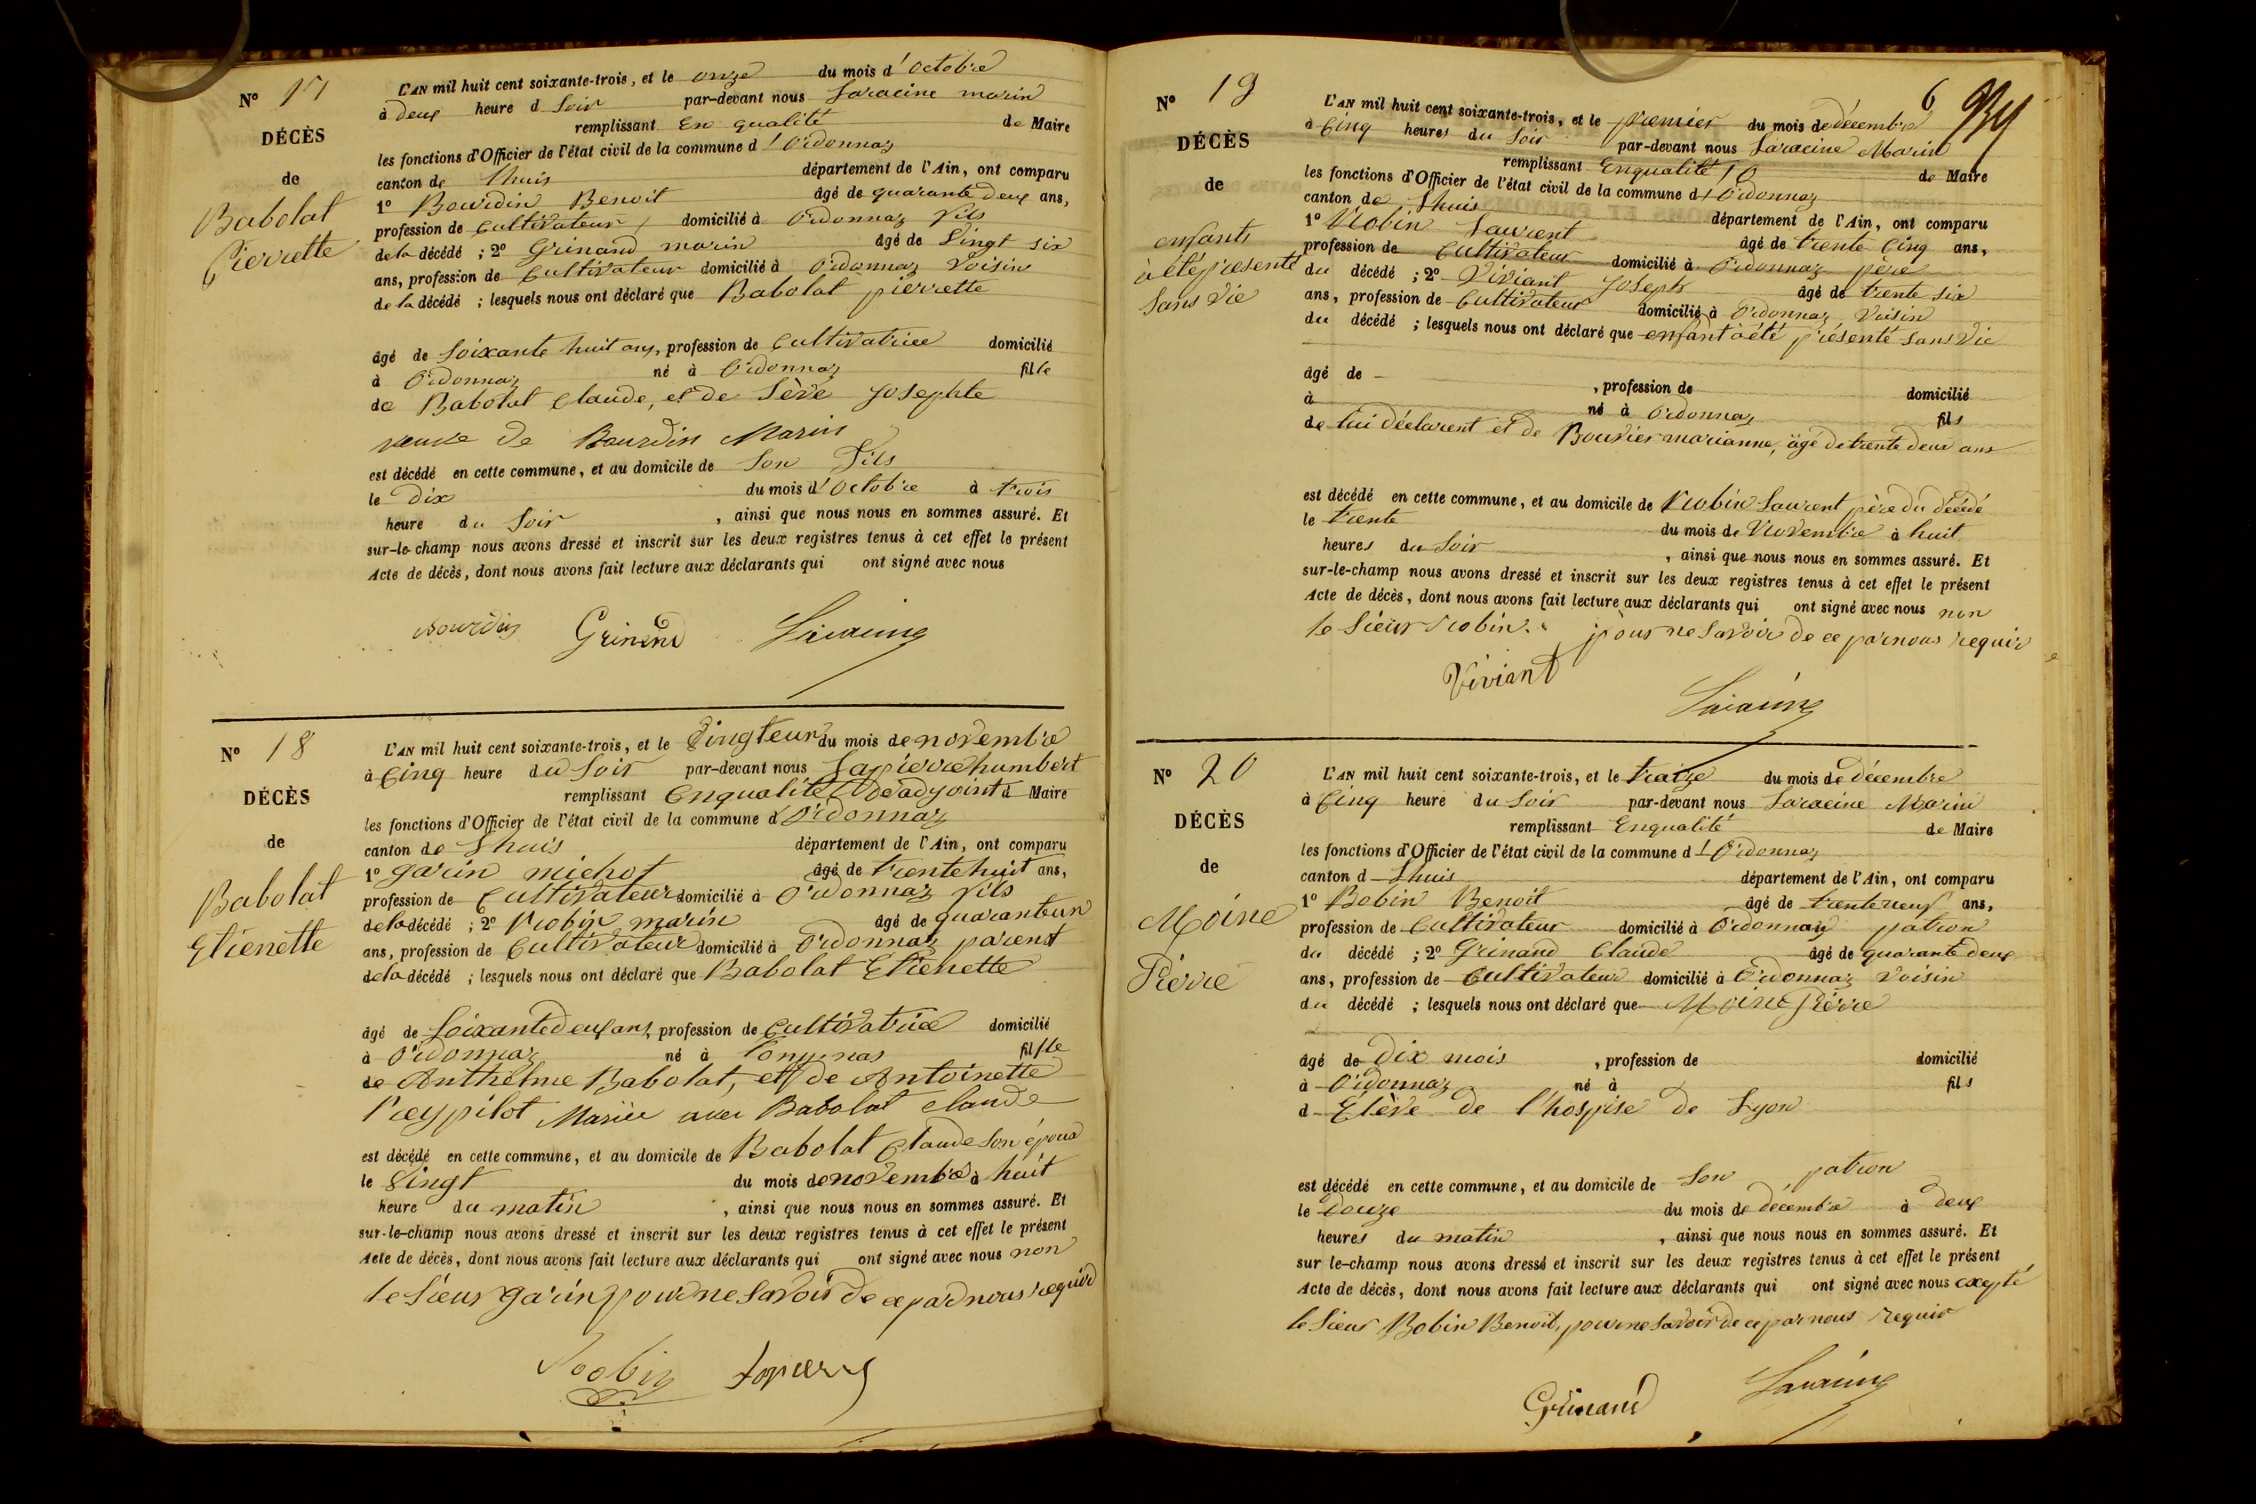 Nº 17
DÉCÈS
de
Babolat
Pierrette
L'AN mil huit cent soixante-trois, et le onze du mois d'Octobre
à deux heure d Soir par-devant nous Saracine marin
remplissant En qualité de Maire
les fonctions d'Officier de l'état civil de la commune d'Ordonnaz
canton de Lhuis département de l'Ain, ont comparu
1º Bourdin Benoit âgé de quarante deux ans,
profession de Cultivateur domicilié à Ordonnaz fils
de la décédé ; 2º Grinand marin âgé de Vingt six
ans, profession de Cultivateur domicilié à Ordonnaz Voisin
de la décédé ; lesquels nous ont déclaré que Babolat pierrette
âgé de Soixante huit ans, profession de Cultivatrice domicilié
à Ordonnaz né à Ordonnaz fille
de Babolat Claude, et de Sève Josephte
veuve de Bourdin Marin
est décédé en cette commune, et au domicile de Son Fils
le Dix du mois d'Octobre à trois
heure du Soir , ainsi que nous nous en sommes assuré. Et
sur-le-champ nous avons dressé et inscrit sur les deux registres tenus à cet effet le présent
Acte de décès, dont nous avons fait lecture aux déclarants qui ont signé avec nous
Bourdin Grinand Saracine
Nº 18
DÉCÈS
de
Babolat
Etienette
L'AN mil huit cent soixante-trois, et le Vingteun du mois de novembre
à Cinq heure du Soir par-devant nous Lapierre humbert
remplissant Enqualité de adjoint d Maire
les fonctions d'Officier de l'état civil de la commune d'Ordonnaz
canton de Lhuis département de l'Ain, ont comparu
1º garin michot âgé de trente huit ans,
profession de Cultivateur domicilié à Ordonnaz fils
de la décédé ; 2º Robin marin âgé de quaranteun
ans, profession de Cultivateur domicilié à Ordonnaz parent
de la décédé ; lesquels nous ont déclaré que Babolat Etienette
âgé de Soixantedeux ans, profession de Cultivatrice domicilié
à Ordonnaz né à fille
de Anthelme Babolat, et de Antoinette
Mariée avec Babolat Claude
est décédé en cette commune, et au domicile de Babolat Claude Son époux
le Vingt du mois de novembre à huit
heure du matin , ainsi que nous nous en sommes assuré. Et
sur-le-champ nous avons dressé et inscrit sur les deux registres tenus à cet effet le présent
Acte de décès, dont nous avons fait lecture aux déclarants qui ont signé avec nous non
le Sieur garin pour ne Savoir de ce par nous requir
Robin Lapierre
6
Nº 19
DÉCÈS
de
enfants
à été présenté
Sans Vie
L'AN mil huit cent soixante-trois, et le premier du mois de décembre
à Cinq heures du Soir par-devant nous Saracine Marin
remplissant Enqualité de Maire
les fonctions d'Officier de l'état civil de la commune d'Ordonnaz
canton de Lhuis département de l'Ain, ont comparu
1º Robin Laurent âgé de trente Cinq ans,
profession de Cultivateur domicilié à Ordonnaz père
du décédé ; 2º Viviant Joseph âgé de trente six
ans, profession de Cultivateur domicilié à Ordonnaz Voisin
du décédé ; lesquels nous ont déclaré que enfant à été présenté sans Vie
âgé de , profession de domicilié
à né à Ordonnaz fils
de lui déclarent et de Bouvier marianne, âgé de trente deux ans
est décédé en cette commune, et au domicile de Robin Laurent père du décédé
le trente du mois de Novembre à huit
heures du Soir , ainsi que nous nous en sommes assuré. Et
sur-le-champ nous avons dressé et inscrit sur les deux registres tenus à cet effet le présent
Acte de décès, dont nous avons fait lecture aux déclarants qui ont signé avec nous non
le Sieur Robin pour ne Savoir de ce par nous requir
Viviant
Saracine
Nº 20
DÉCÈS
de
Moine
Pierre
L'AN mil huit cent soixante-trois, et le traize du mois de décembre
à Cinq heure du Soir par-devant nous Saracine Marin
remplissant Enqualité de Maire
les fonctions d'Officier de l'état civil de la commune d'Ordonnaz
canton d Lhuis département de l'Ain, ont comparu
1º Bobin Benoit âgé de trente neuf ans,
profession de Cultivateur domicilié à Ordonnaz patron
du décédé ; 2º Grinand Claude âgé de quarante deux
ans, profession de Cultivateur domicilié à Ordonnaz Voisin
du décédé ; lesquels nous ont déclaré que Moine Pierre
âgé de Dix mois , profession de domicilié
à Ordonnaz né à fils
d Élève de l'hospise de Lyon
est décédé en cette commune, et au domicile de Son patron
le Douze du mois de décembre à deux
heures du matin , ainsi que nous nous en sommes assuré. Et
sur le-champ nous avons dressé et inscrit sur les deux registres tenus à cet effet le présent
Acte de décès, dont nous avons fait lecture aux déclarants qui ont signé avec nous excepté
le Sieur Bobin Benoit, pour ne Savoir de ce par nous requir
Grinand Saracine